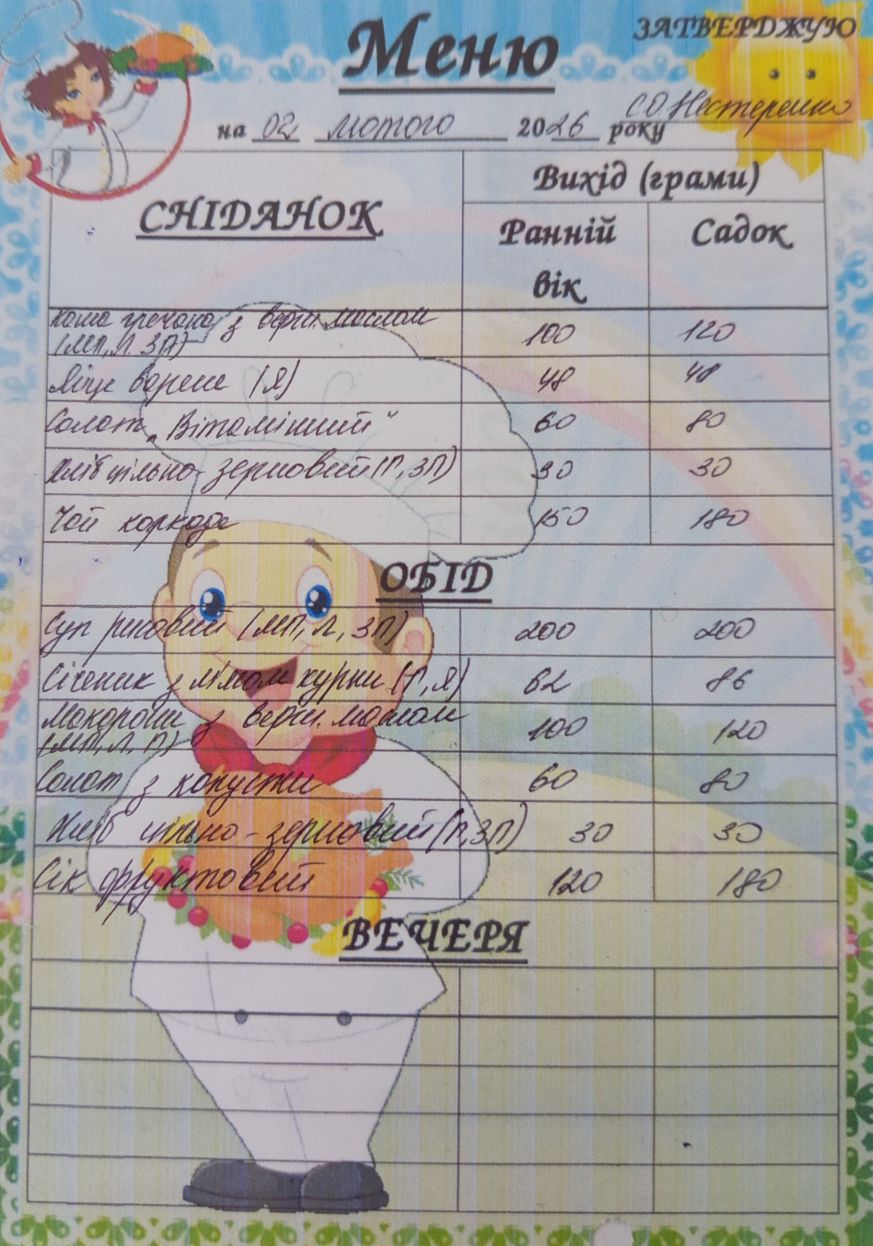 ЗАТВЕРДЖУЮ
Меню
СО Нестеренко
на 02 лютого 2026 року
СНІДАНОК
Вихід (грами)
Ранній вік
Садок
каша гречана з верш. маслом (МП, Л, ЗП) 100 120
Яйце варене (Я) 48 48
Салат „Вітамінний" 60 80
Хліб цільно-зерновий (П, ЗП) 30 30
Чай каркаде 150 180
ОБІД
Суп рисовий (МП, Л, ЗП) 200 200
Січеник з м'ясом курки (П, Я) 62 86
Макарони з верш. маслом (МП, Л, П) 100 120
Салат з капусти 60 80
Хліб цільно-зерновий (П, ЗП) 30 30
Сік фруктовий 120 180
ВЕЧЕРЯ